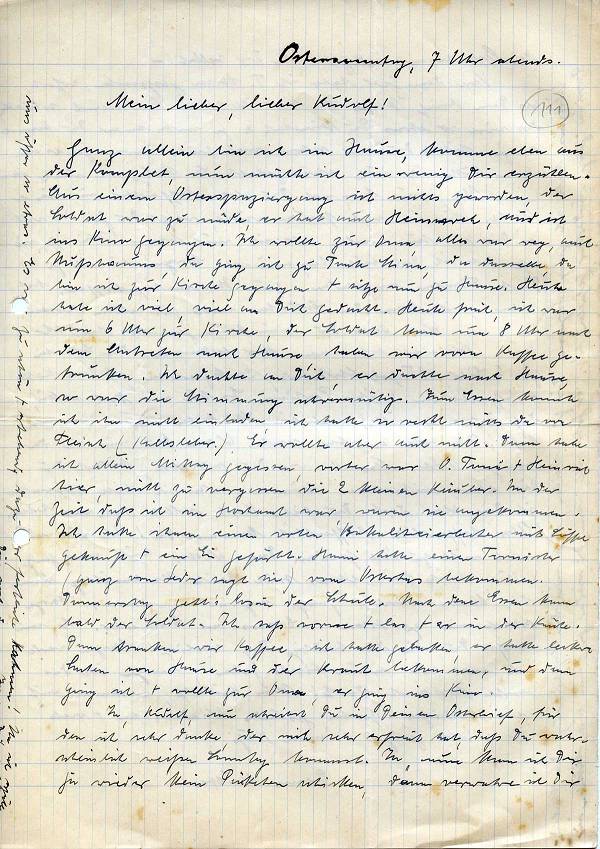 Ostersonntag, 7 Uhr abends.
Mein lieber, lieber Rudolf!
111
Ganz allein bin ich im Hause, komme eben aus
der Komplet, nun möchte ich ein wenig Dir erzählen.
Aus einem Osterspaziergang ist nichts geworden, der
Soldat war zu müde, er hat auch Heimweh, und ist
ins Kino gegangen. Ich wollte zur Oma, alles war weg, auch
da ging ich zu Tante Mina, da dasselbe, da
bin ich zur Kirche gegangen + sitze nun zu Hause. Heute
habe ich viel, viel an Dich gedacht. Heute früh, ich war
um 6 Uhr zur Kirche, der Soldat kam um 8 Uhr nach
dem Antreten nach Hause, haben wir vorn Kaffee ge-
trunken. Ich dachte an Dich, er dachte nach Hause,
so war die Stimmung. Zum Essen konnte
ich ihn nicht einladen, ich hatte so recht nichts da von
Fleisch (Kalbsleber). Er wollte aber auch nicht. Dann habe
ich allein Mittag gegessen, vorher war O. Toni + Heinrich
hier, nicht zu vergessen die 2 kleinen Räuber. In der
Zeit daß ich im Hochamt war waren sie angekommen.
Ich hatte ihnen einen roten mit
gekauft + ein Ei gefärbt. Hani hatte einen Tornister
(ganz von Leder sagt sie) vom Osterhas bekommen.
Donnerstag geht's los in der Schule. Nach dem Essen kam
bald der Soldat. Ich saß vorne + las + er in der Küche.
Dann tranken wir Kaffee, ich hatte gebacken, er hatte leckere
Sachen von Hause und der Braut bekommen, und dann
ging ich + wollte zur Oma, er ging ins Kino.
Ja, Rudolf, nun schreibst Du in Deinem Osterbrief, für
den ich sehr danke, der mich sehr erfreut hat, daß Du wahr-
scheinlich weißen Sonntag kommst. Ja, nun kann ich Dir
ja wieder kein Päckchen schicken, dann verwahre ich Dir